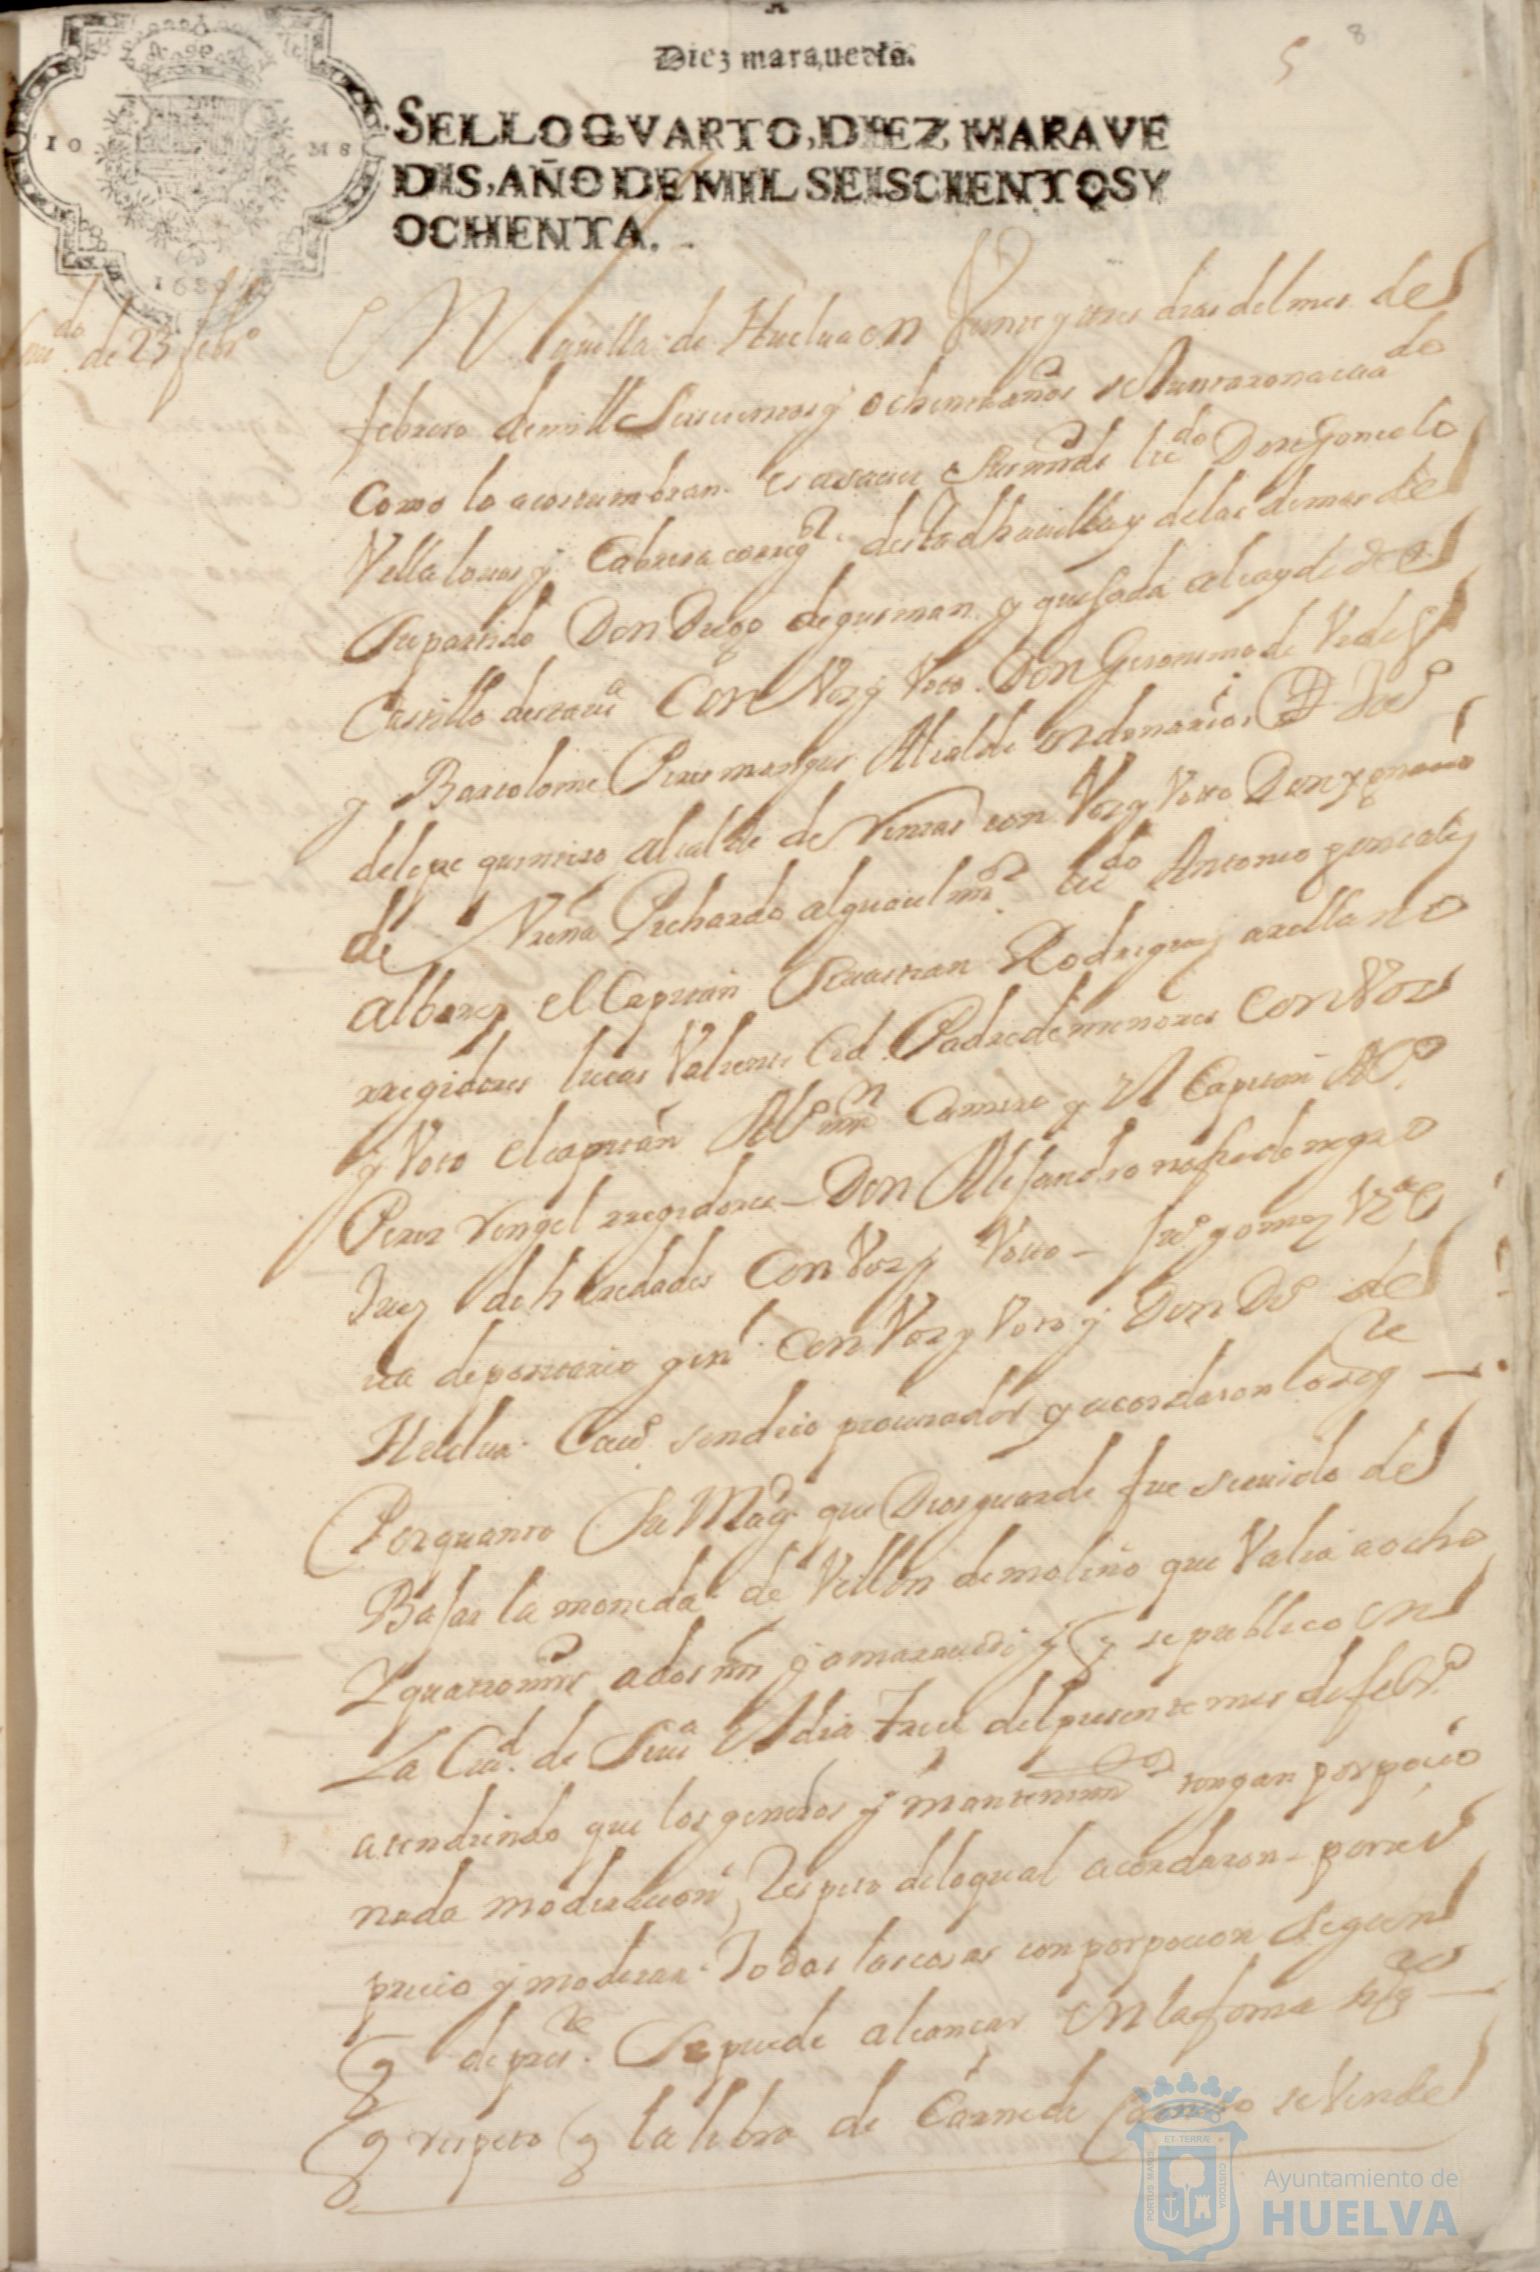 Diez marauedis.
5 8
SELLO QVARTO, DIEZ MARAVE
DIS, AÑO DE MIL SEISCIENTOS Y
OCHENTA.
1680
do de 23 febro
En la uilla de Huelua en Veinte y tres dias del mes de
febrero de mill Seiscientos y ochenta años se Juntaron a caudo
Como lo acostumbran es asauer Sus mrds lizdo Don Gonzalo
Villalouos y Cabrera corregr desta dha uilla y de las demas de
Su partido Don Diego de gusman y quesada alcayde del
Castillo desta uia Con Voz y Voto. Don Geronimo de
y Bartolome Peres mangas Alcalde ordenarios, D
de lepe quintero alcalde de Ventas con Voz y Voto Don Ygnacio
de Vreña Pichardo alguacil mr lizdo Antonio gonzales
albares el Capitan Seuastian Rodriguez arellano
rregidores lucas Valiente Cid. Padre de menores Con Voz
y Voto el capitan Alo mrn Camero y el Capitan Alo
Peres rengel rregidores – Don Alejandro negro
Juez de heredades Con Voz y Voto – fro gomez
ua depositario genl Con Voz y Voto y Don Do de
Huelua Cauo sendico procurador y acordaron lo sigte
Por quanto Su Magd que Dios guarde fue seruido de
Bajar la moneda de Vellon de molino que Valia a ocho
Y quatro mrs a dos mrs y a marauedi y q se publico en
La Ciud de Seua el dia trece del presente mes de febro
atendiendo que los generos y mantenimtos tengan porpocio
nada moderacion, Respeto de lo qual acordaron – poner
precio y moderar Todas las cosas con porpocion Segun
q de preste Se puede alcansar en la forma sigte
q respeto q la libra de Carne de Carnero se Vende
Ayuntamiento de
HUELVA
PORTUS MARIS
ET TERRÆ
CUSTODIA